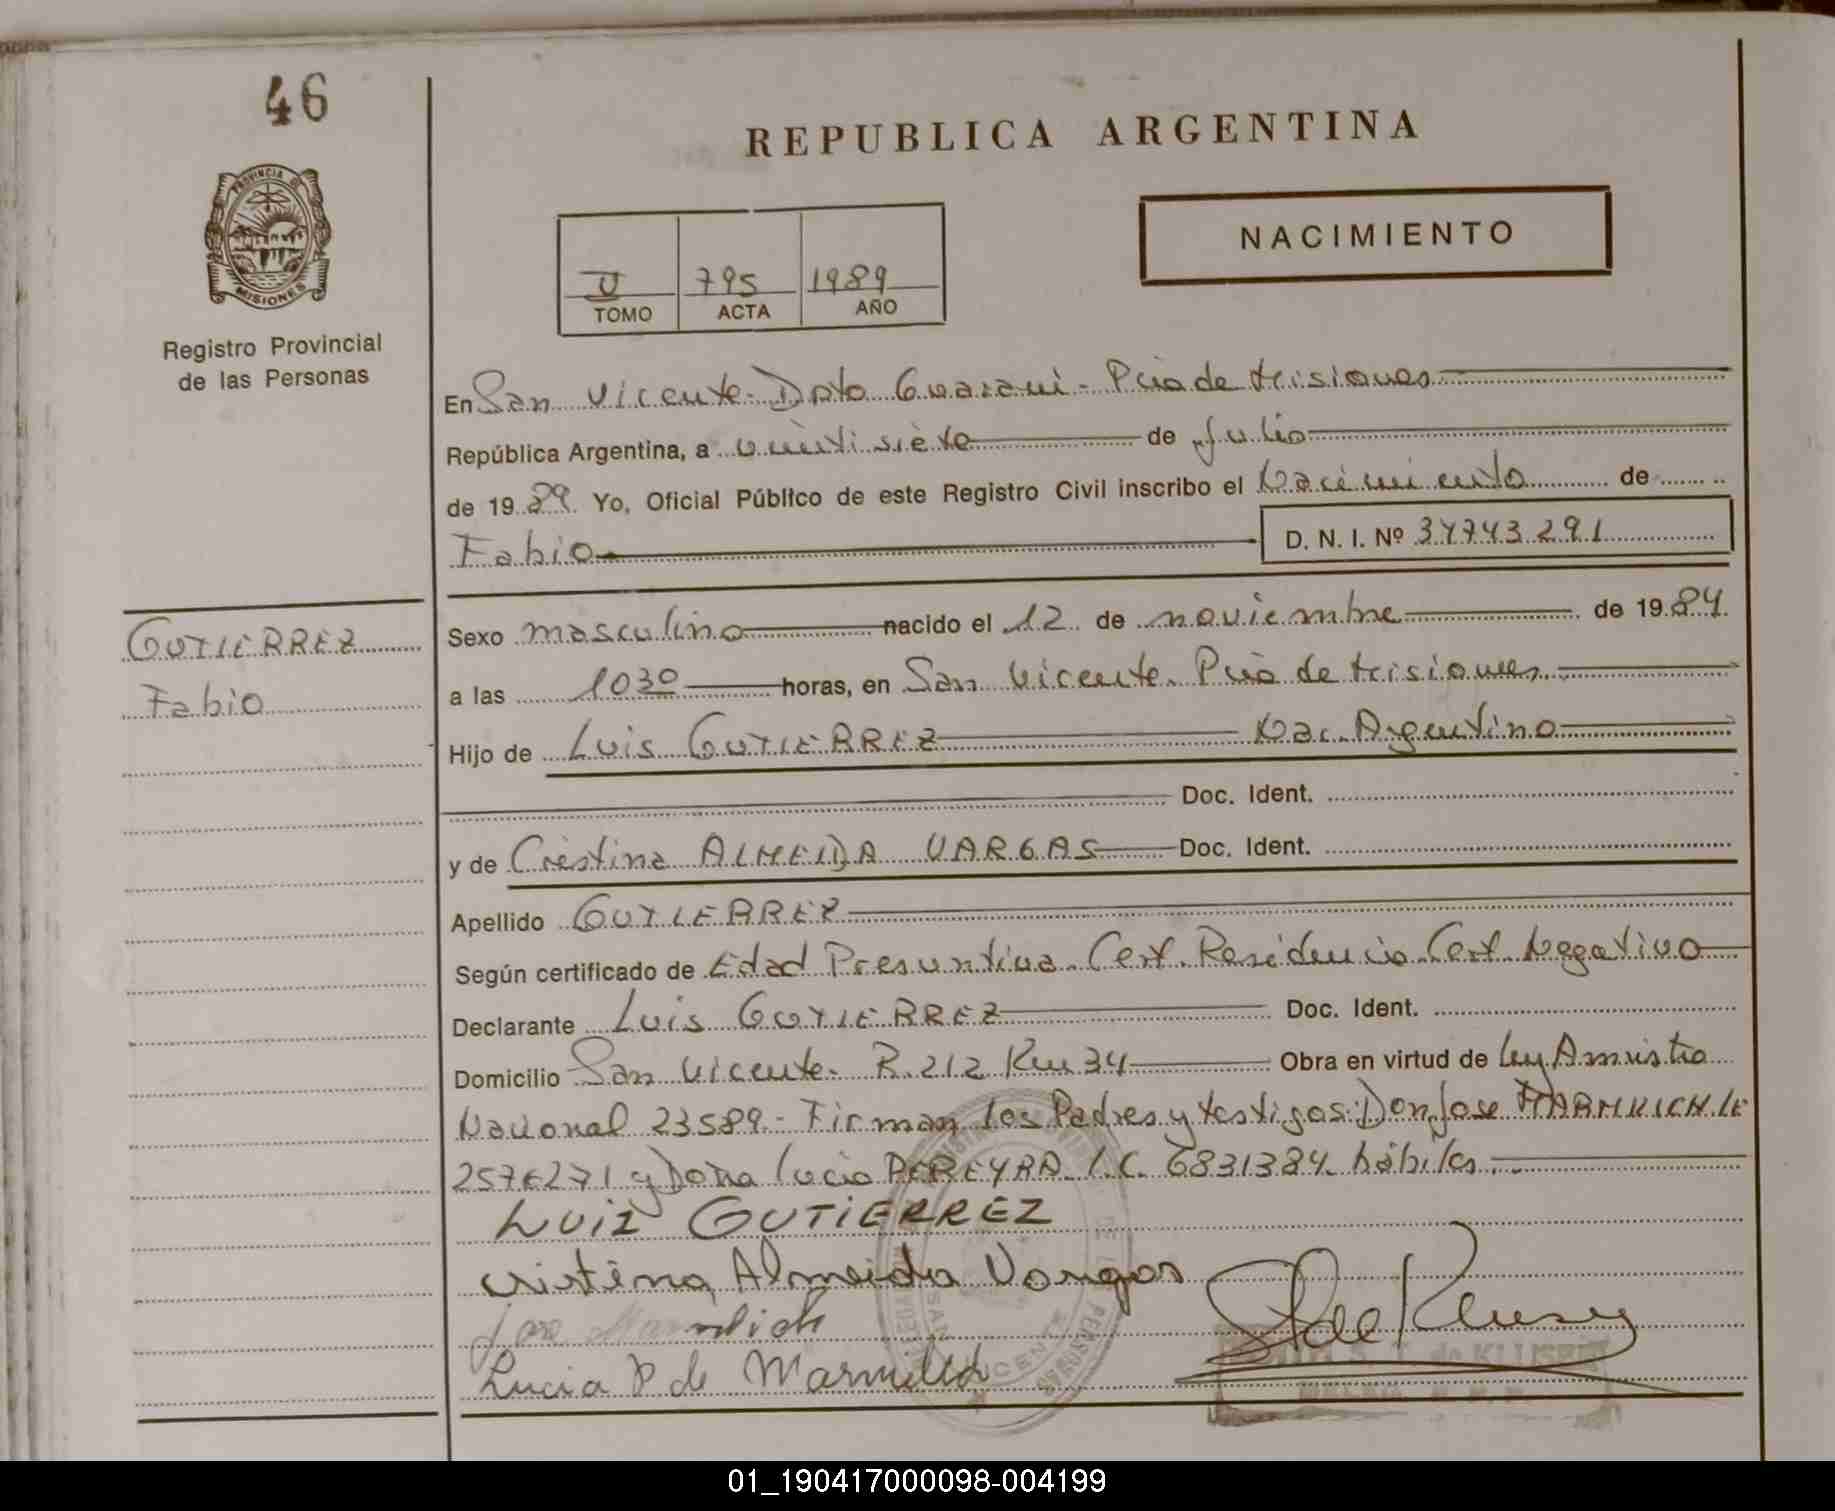 46
REPUBLICA ARGENTINA
PROVINCIA DE
MISIONES
Registro Provincial
de las Personas
NACIMIENTO
U 795 1989
TOMO ACTA AÑO
En San Vicente - Dpto Guaraní - Pcia de Misiones
República Argentina, a veintisiete de Julio
de 1989 Yo, Oficial Público de este Registro Civil inscribo el Nacimiento de
Fabio D. N. I. Nº 34743291
GUTIERREZ
Fabio
Sexo masculino nacido el 12 de noviembre de 1984
a las 1030 horas, en San Vicente - Pcia de Misiones
Hijo de Luis GUTIERREZ Nac. Argentino
Doc. Ident.
y de Cristina ALMEIDA VARGAS Doc. Ident.
Apellido GUTIERREZ
Según certificado de Edad Presuntiva - Cert. Residencia - Cert. Negativo
Declarante Luis GUTIERREZ Doc. Ident.
Domicilio San Vicente - R. 212 Km 34 Obra en virtud de Ley Amnistia
Nacional 23589.- Firman los Padres y testigos: Don Jose
y Doña Lucia PEREYRA L.C. 6831384 hábiles.
LUIZ GUTIERREZ
cristina Almeida Vargas
Lucia P de
S. T. de KLUSE
01_190417000098-004199